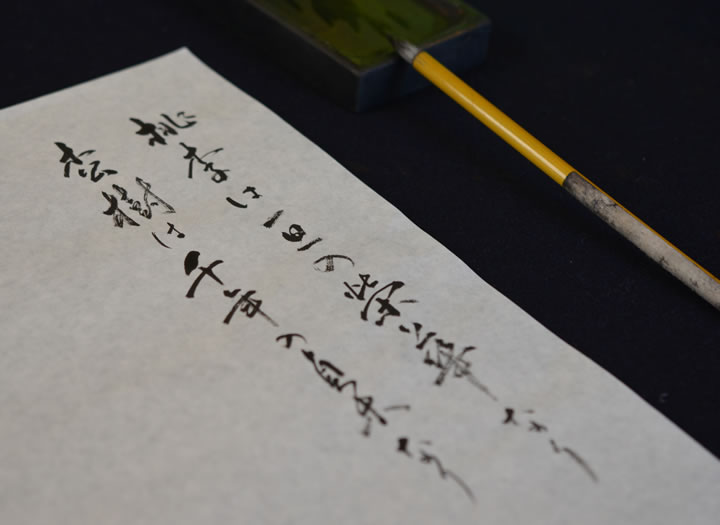 桃李は一旦の栄華なり
枩樹は千年の貞木なり